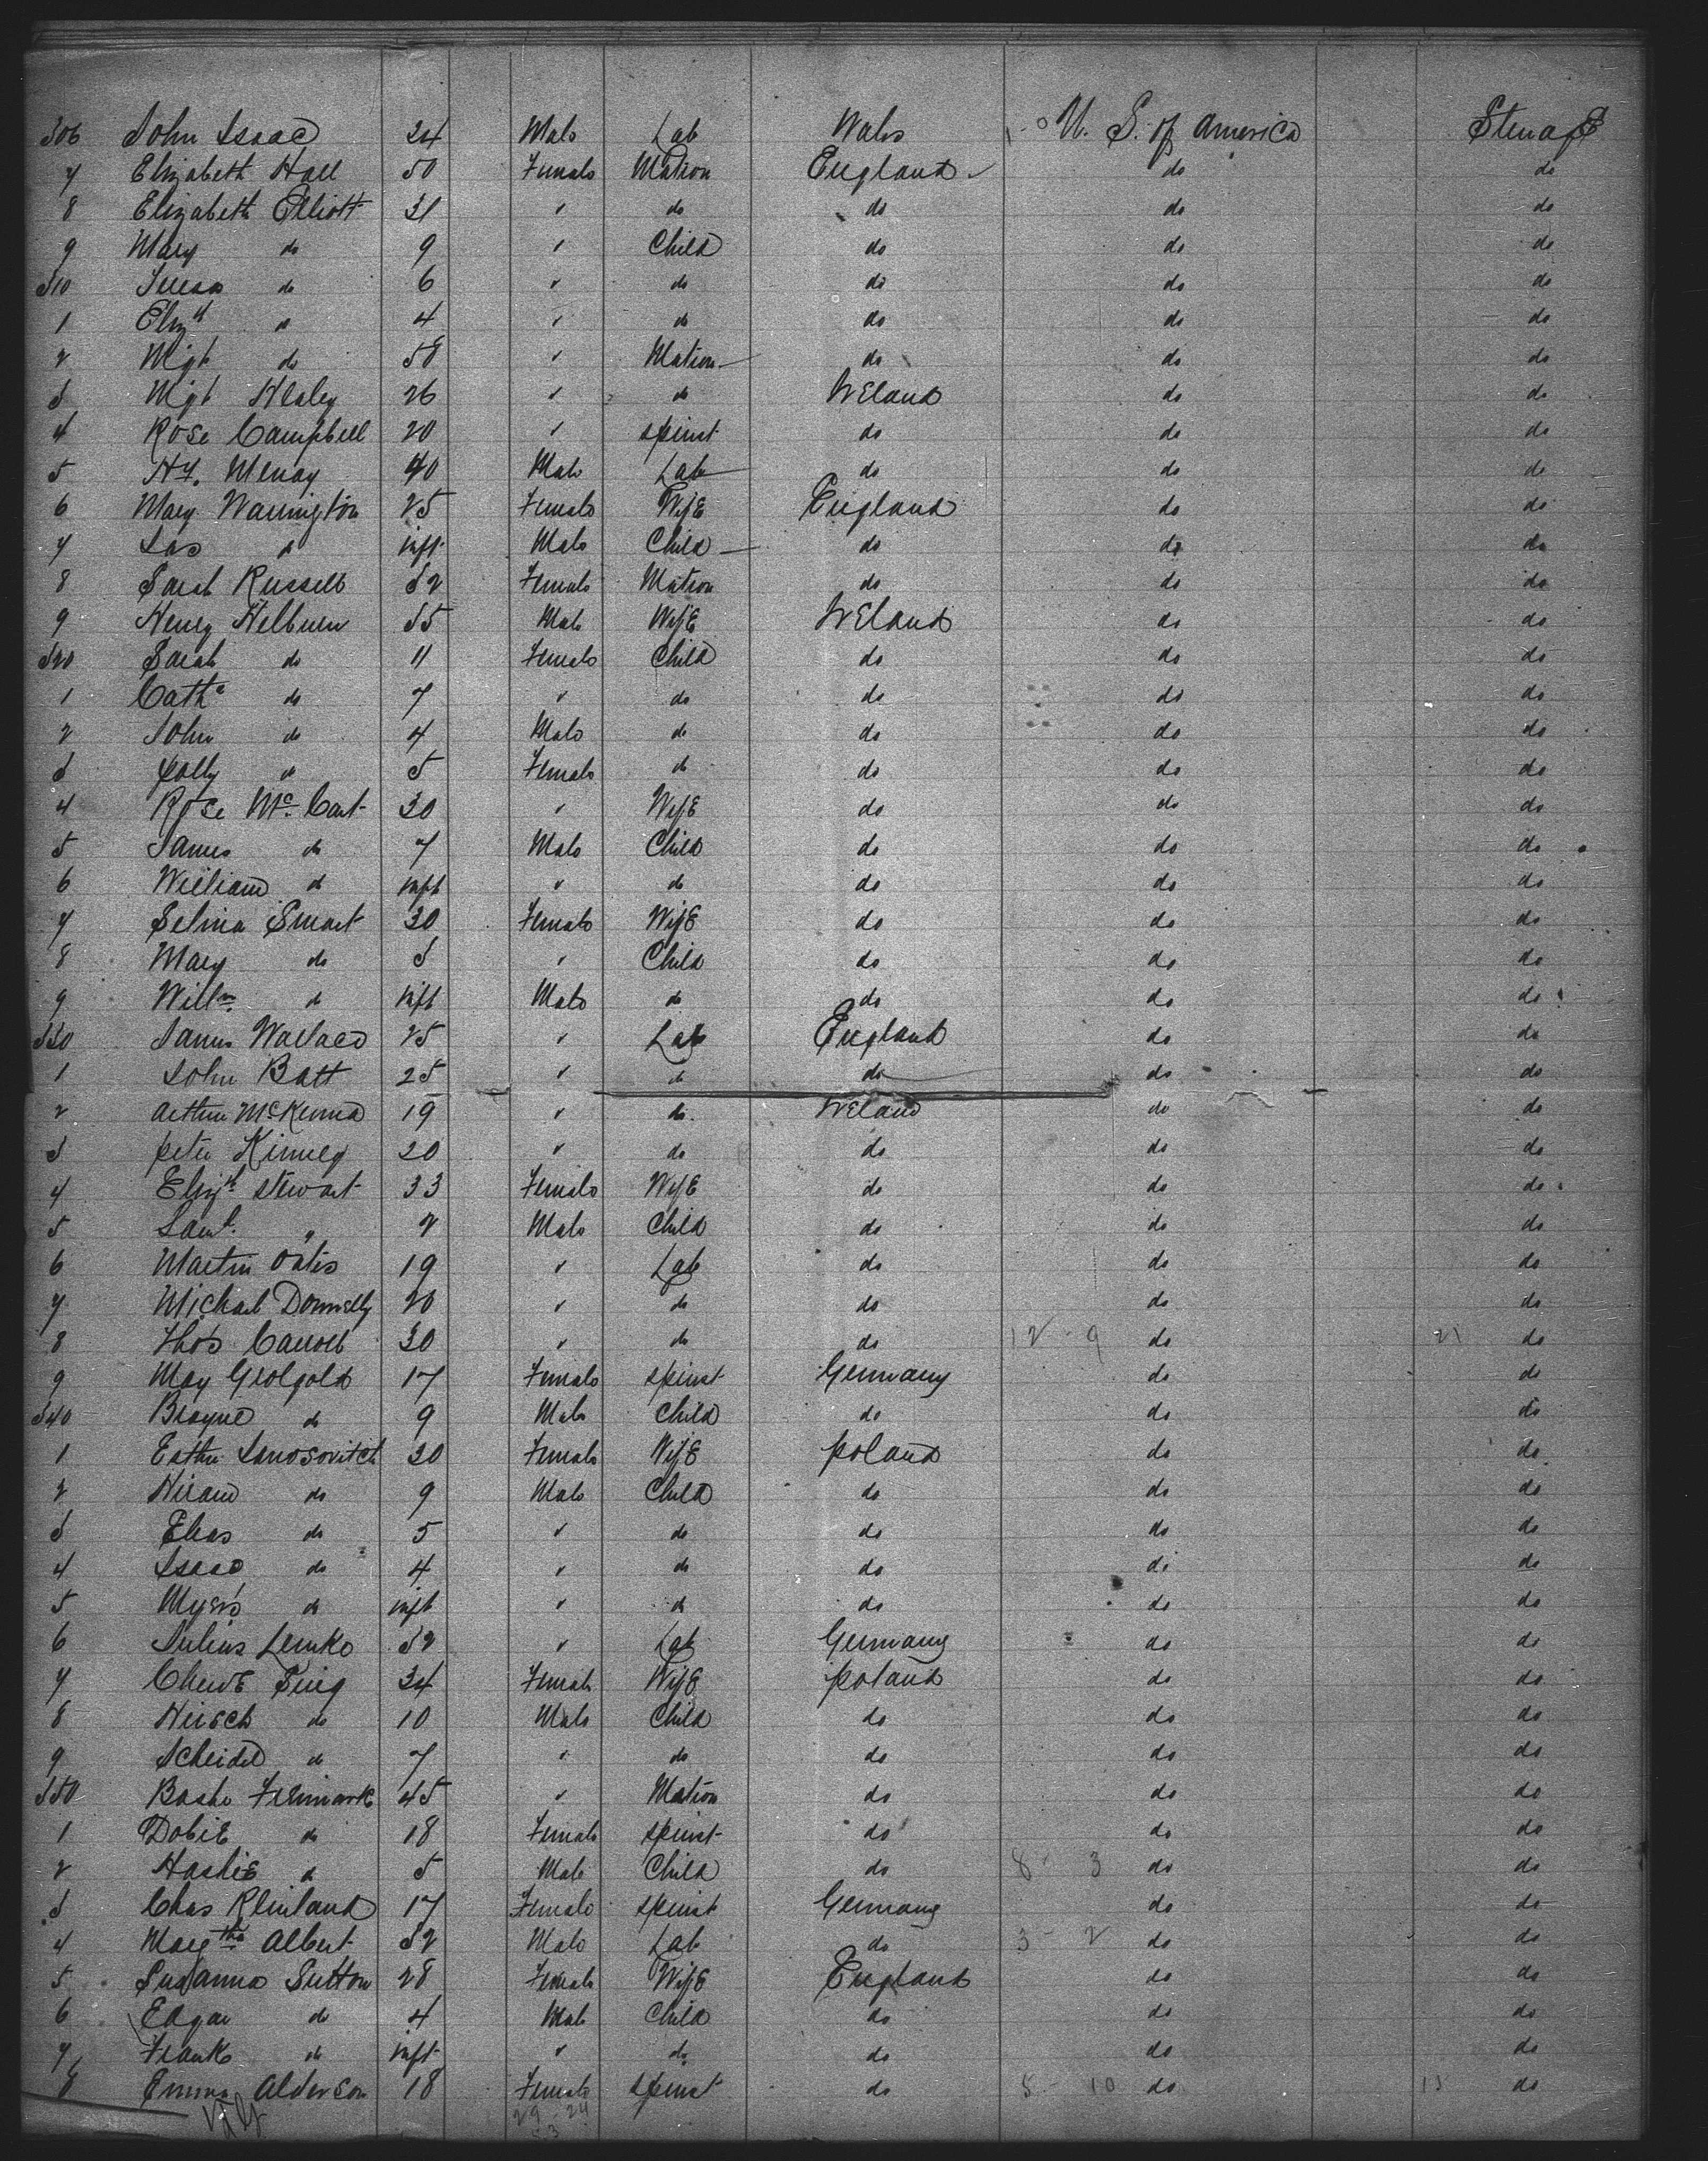 306 John Isaac 24 Male Lab Wales U. S. of America Steerage
7 Elizabeth Hall 50 Female Matron England do do
8 Elizabeth Elliott 31 " do do do do
9 Mary do 9 " Child do do do
310 Teresa do 6 " do do do do
1 Elizth do 4 " do do do do
2 Mgt do 58 " Matron do do do
3 Mgt Healey 26 " do Ireland do do
4 Rose Campbell 20 " spinst do do do
5 Hy. 40 Male Lab do do do
6 Mary Warrington 25 Female Wife England do do
7 Jas do inft Male Child do do do
8 Sarah Russell 32 Female Matron do do do
9 Henry 35 Male Wife Ireland do do
320 Sarah do 11 Female Child do do do
1 Cathe do 7 " do do do do
2 John do 4 Male do do do do
3 Polly do 5 Female do do do do
4 Rose McCart 30 " Wife do do do
5 James do 7 Male Child do do do
6 William do inft " do do do do
7 Selina Smart 30 Female Wife do do do
8 Mary do 3 " Child do do do
9 Willm. do inft Male do do do do
330 James Wallace 25 " Lab England do do
1 John Batt 25 " do do do do
2 Arthur McKenna 19 " do. Ireland do do
3 Peter Kinney 20 " do do do do
4 Elizth Stewart 33 Female Wife do do do
5 Saml. " 2 Male Child do do do
6 Martin Oates 19 " Lab do do do
7 Michael Donnelly 20 " do do do do
8 Thos Carroll 30 " do do 12 - 9 do 21 do
9 May 17 Female spinst Germany do do
340 do 9 Male Child do do do
1 Esther 30 Female Wife Poland do do
2 Hiram do 9 Male Child do do do
3 Elias do 5 " do do do do
4 Isaac do 4 " do do do do
5 Myers do inft " do do do do
6 Julius Lemke 32 " Lab Germany do do
7 34 Female Wife Poland do do
8 Hirsch do 10 Male Child do do do
9 Scheidel do 7 " do do do do
350 Bashe 45 " Matron do do do
1 Dobie do 18 Female spinst do do do
2 Haskie do 5 Male Child do 8 - 3 do do
3 Chas Kleinland 17 Female spinst Germany do do
4 Albert 32 Male Lab do 3 - 2 do do
5 Susanna Sutton 28 Female Wife England do do
6 Edgar do 4 Male Child do do do
7 Frank do inft " do do do do
8 Emma Alderson 18 Female spinst do 5 - 10 do 13 do
29 24
53